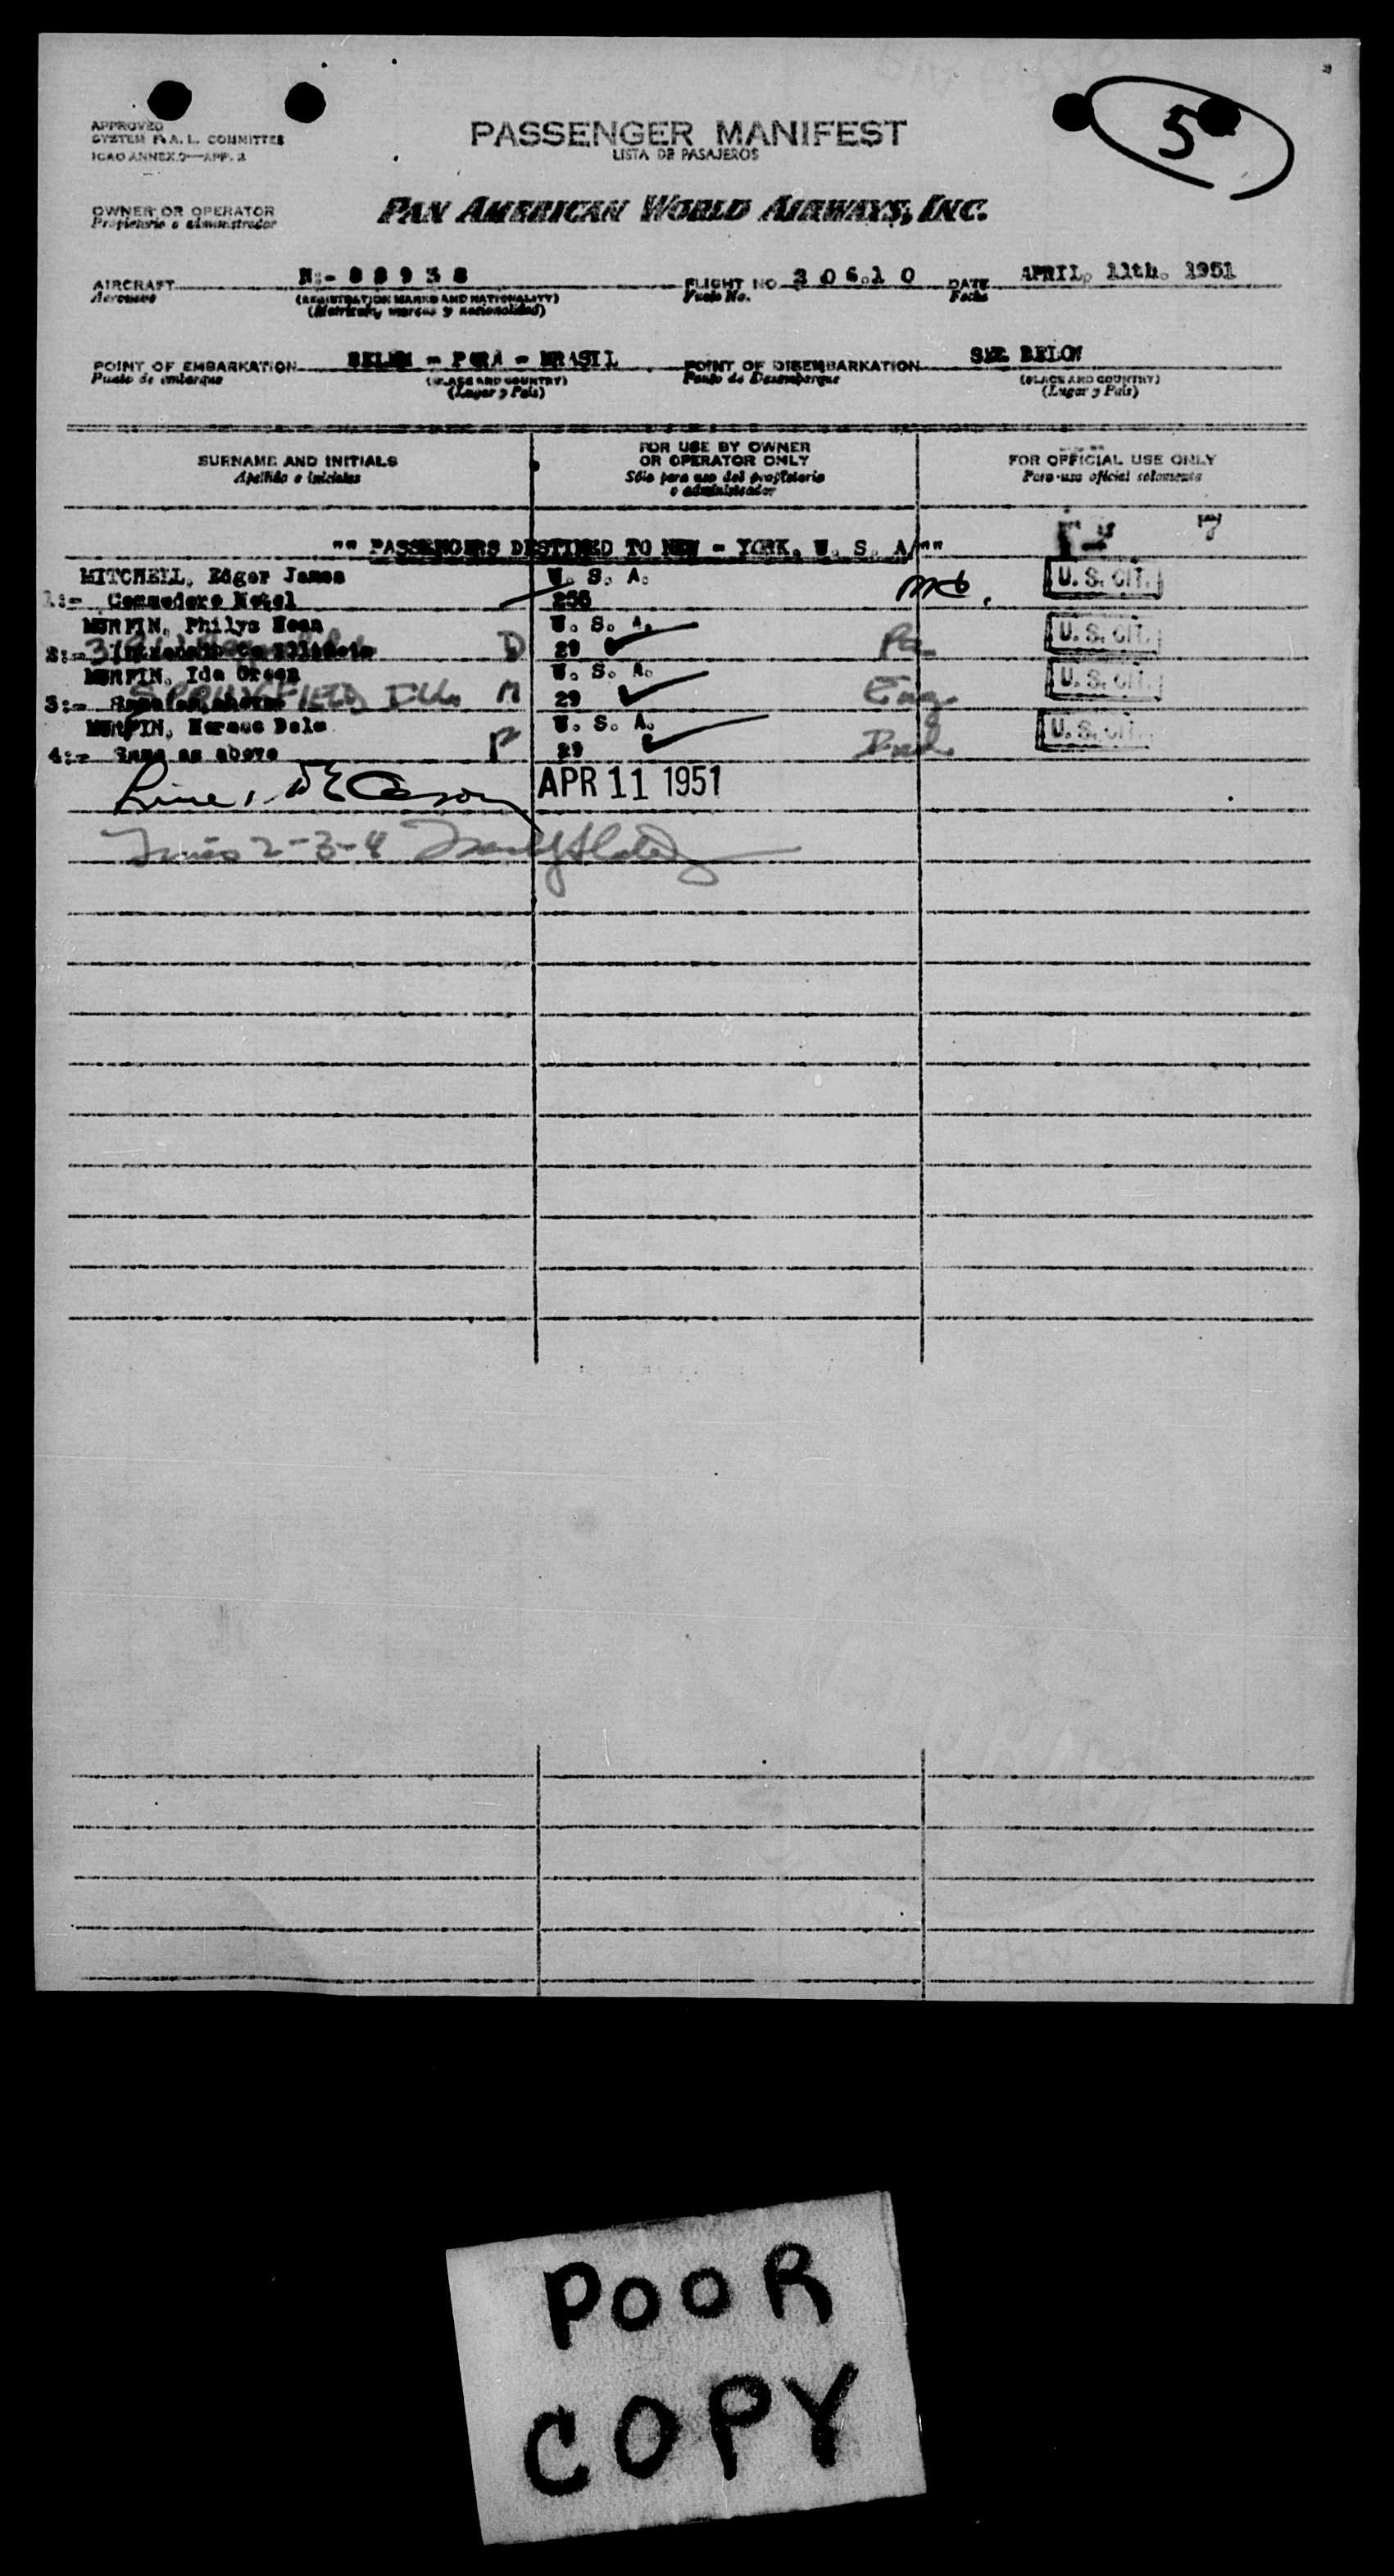 5
APPROVED
SYSTEM F. A. L. COMMITTEE
ICAO ANNEX 9—APP. 2
PASSENGER MANIFEST
LISTA DE PASAJEROS
OWNER OR OPERATOR
Propietario o administrador
PAN AMERICAN WORLD AIRWAYS, INC.
AIRCRAFT N:- 88938 FLIGHT NO. 306.10 DATE APRIL, 11th. 1951
Aeronave (REGISTRATION MARKS AND NATIONALITY) Vuelo No. Fecha
(Matricula, marcas y nacionalidad)
POINT OF EMBARKATION BELEM - PARA - BRASIL POINT OF DISEMBARKATION SEE BELOW
Punto de embarque (PLACE AND COUNTRY) Punto de Desembarque (PLACE AND COUNTRY)
(Lugar y País) (Lugar y País)
SURNAME AND INITIALS FOR USE BY OWNER OR OPERATOR ONLY FOR OFFICIAL USE ONLY
Apellido e iniciales Sólo para uso del propietario o administrador Para uso oficial solamente
"" PASSENGERS DESTINED TO NEW - YORK, U. S. A/"" 7
MITCHELL, Edger James U. S. A. U. S. CIT.
1:- Commodore Hotel 256
MURFIN, Philys U. S. A. U. S. CIT.
2:- D 29 Pa.
MURFIN, Ida Green U. S. A. U. S. CIT.
3:- SPRINGFIELD, ILL. M 29 Eng.
MURFIN, Horace Dale U. S. A. U. S. CIT.
4:- Same as above F 29
Line 1. APR 11 1951
Lines 2-3-4
POOR
COPY